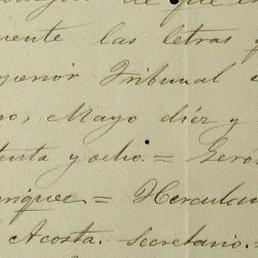 de que
mente las letras y
Superior Tribunal
ro, Mayo diez y
tenta y ocho. = Geró
ríquez = Herculan
Acosta. Secretario. =